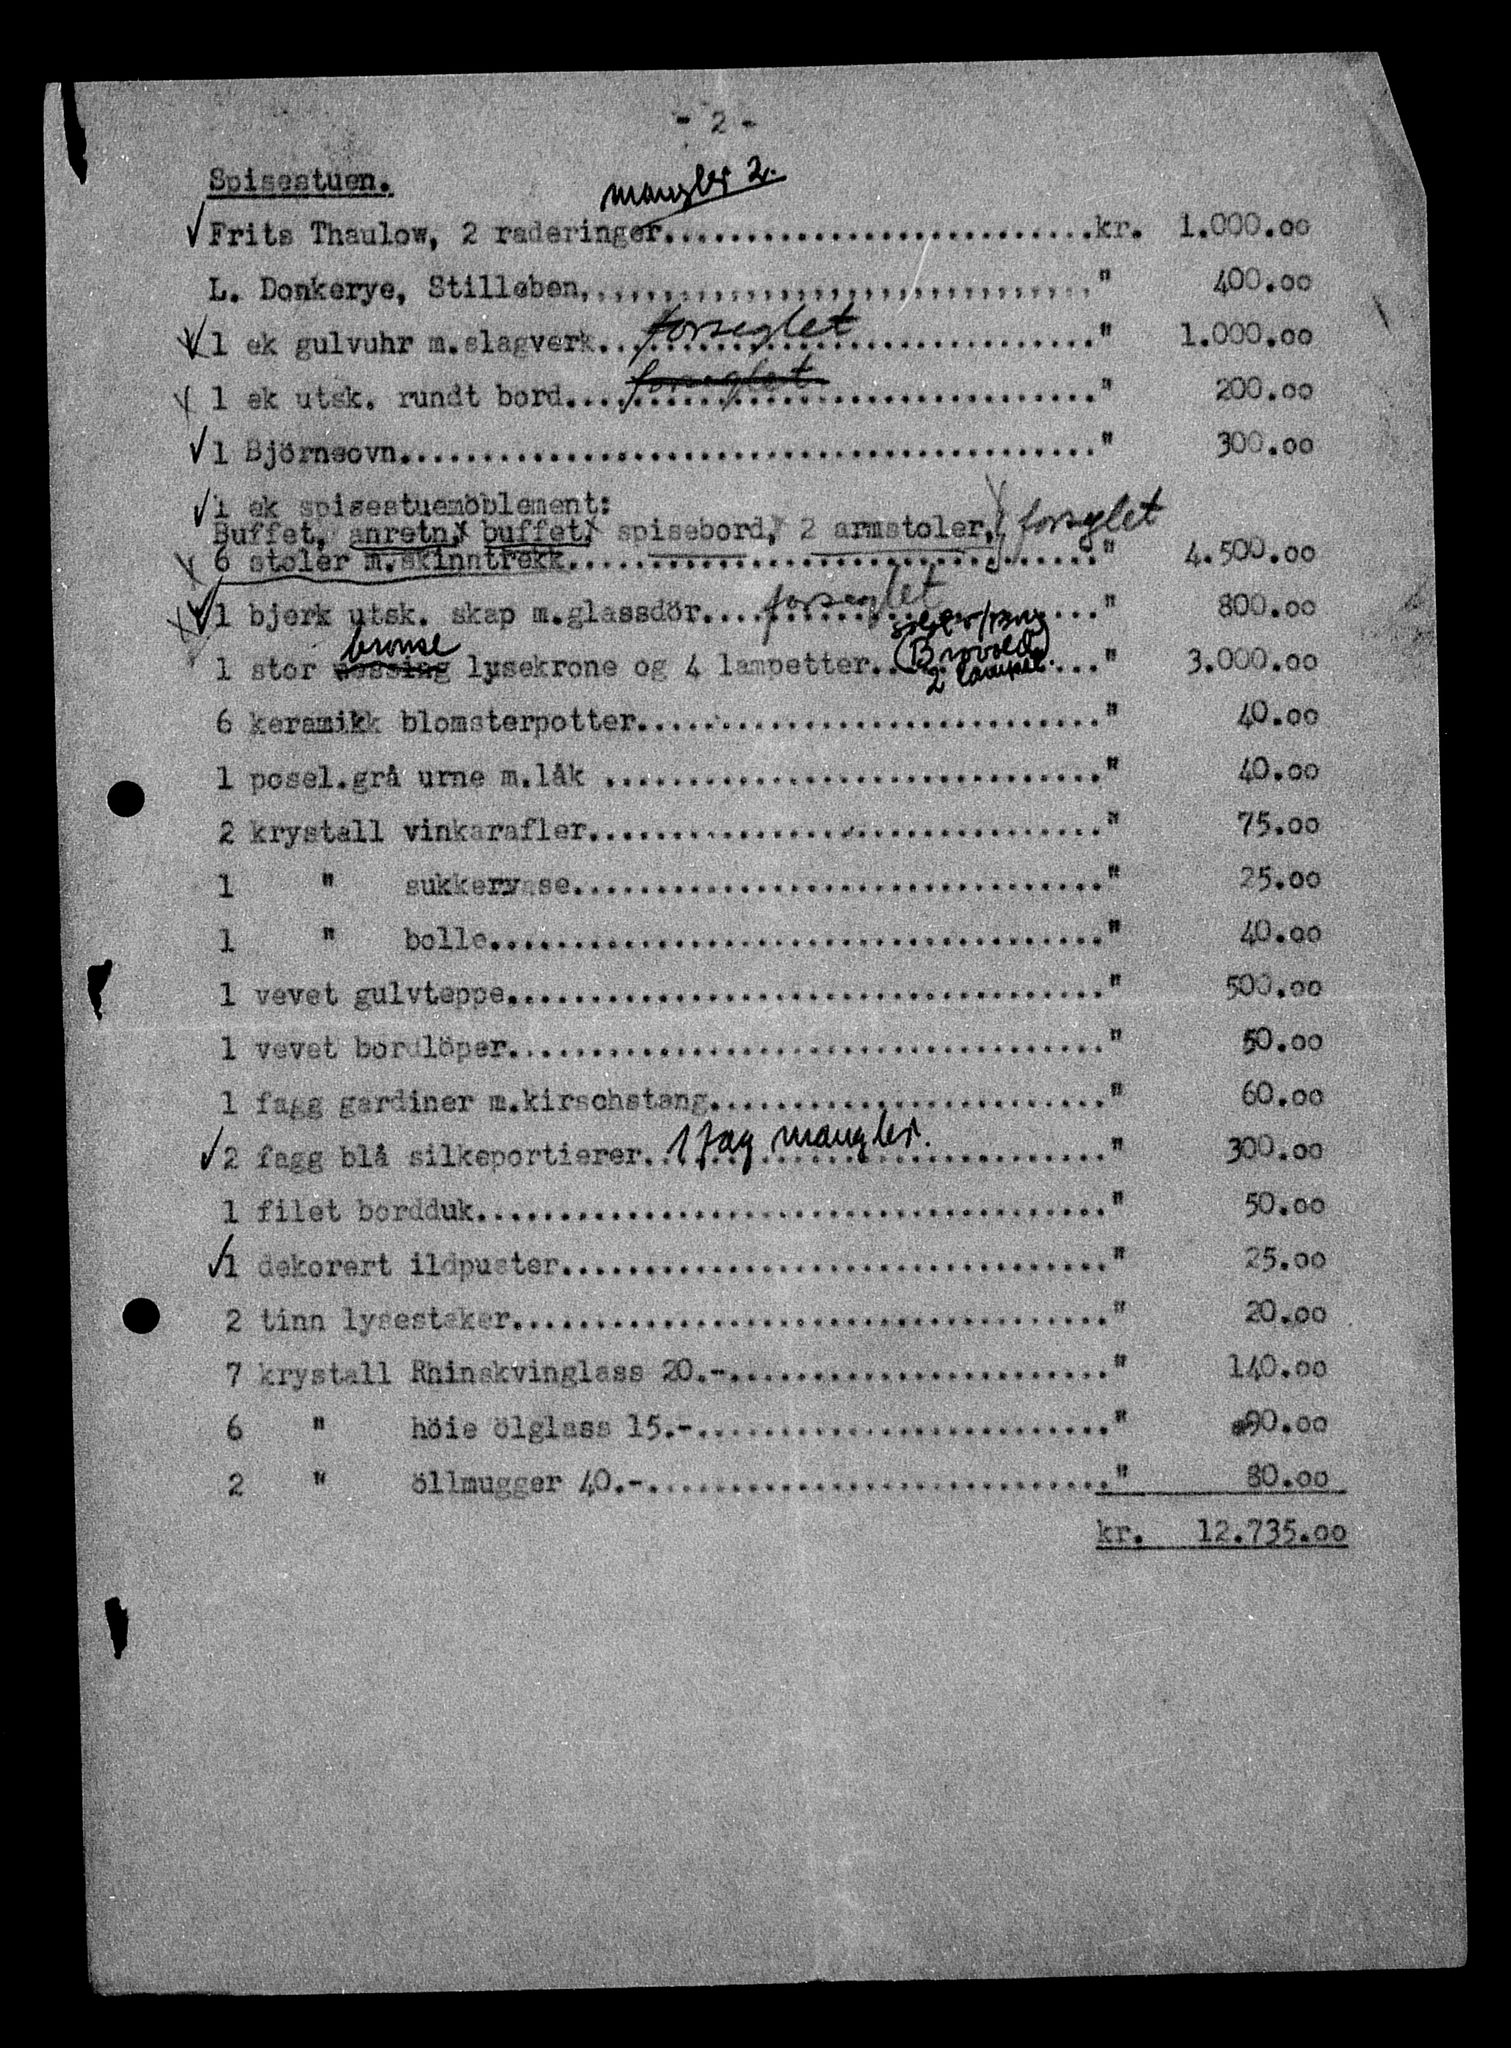 - 2 -
Spisestuen.
mangler 2.
Frits Thaulow, 2 raderinger............................kr. 1.000.00
L. Donkerye, Stilleben,,,,,,,,,,,,,,,,,,,,,,,,,,,,,,," 400.00
1 ek gulvuhr m.slagverk... forseglet ..................." 1.000.00
1 ek utsk. rundt bord... forseglet ....................." 200.00
1 Björneovn.........................................." 300.00
1 ek spisestuemöblement:
Buffet, anretn, buffet, spisebord, 2 armstoler, forseglet
6 stoler m.skinntrekk................................" 4.500.00
1 bjerk utsk. skap m.glassdör... forseglet ..........." 800.00
bronse
1 stor messing lysekrone og 4 lampetter... (Brovold) ..." 3.000.00
2 lampet.
6 keramikk blomsterpotter............................" 40.00
1 posel.grå urne m.låk .............................." 40.00
2 krystall vinkarafler..............................." 75.00
1 " sukkervase................................" 25.00
1 " bolle....................................." 40.00
1 vevet gulvteppe...................................." 500.00
1 vevet bordlöper...................................." 50.00
1 fagg gardiner m.kirschstang........................" 60.00
2 fagg blå silkeportierer. 1 fag mangler. ............" 300.00
1 filet bordduk......................................" 50.00
1 dekorert ildpuster................................." 25.00
2 tinn lysestaker...................................." 20.00
7 krystall Rhinskvinglass 20.-......................." 140.00
6 " höie ölglass 15.-........................." 90.00
2 " öllmugger 40.-............................" 80.00
kr. 12.735.00